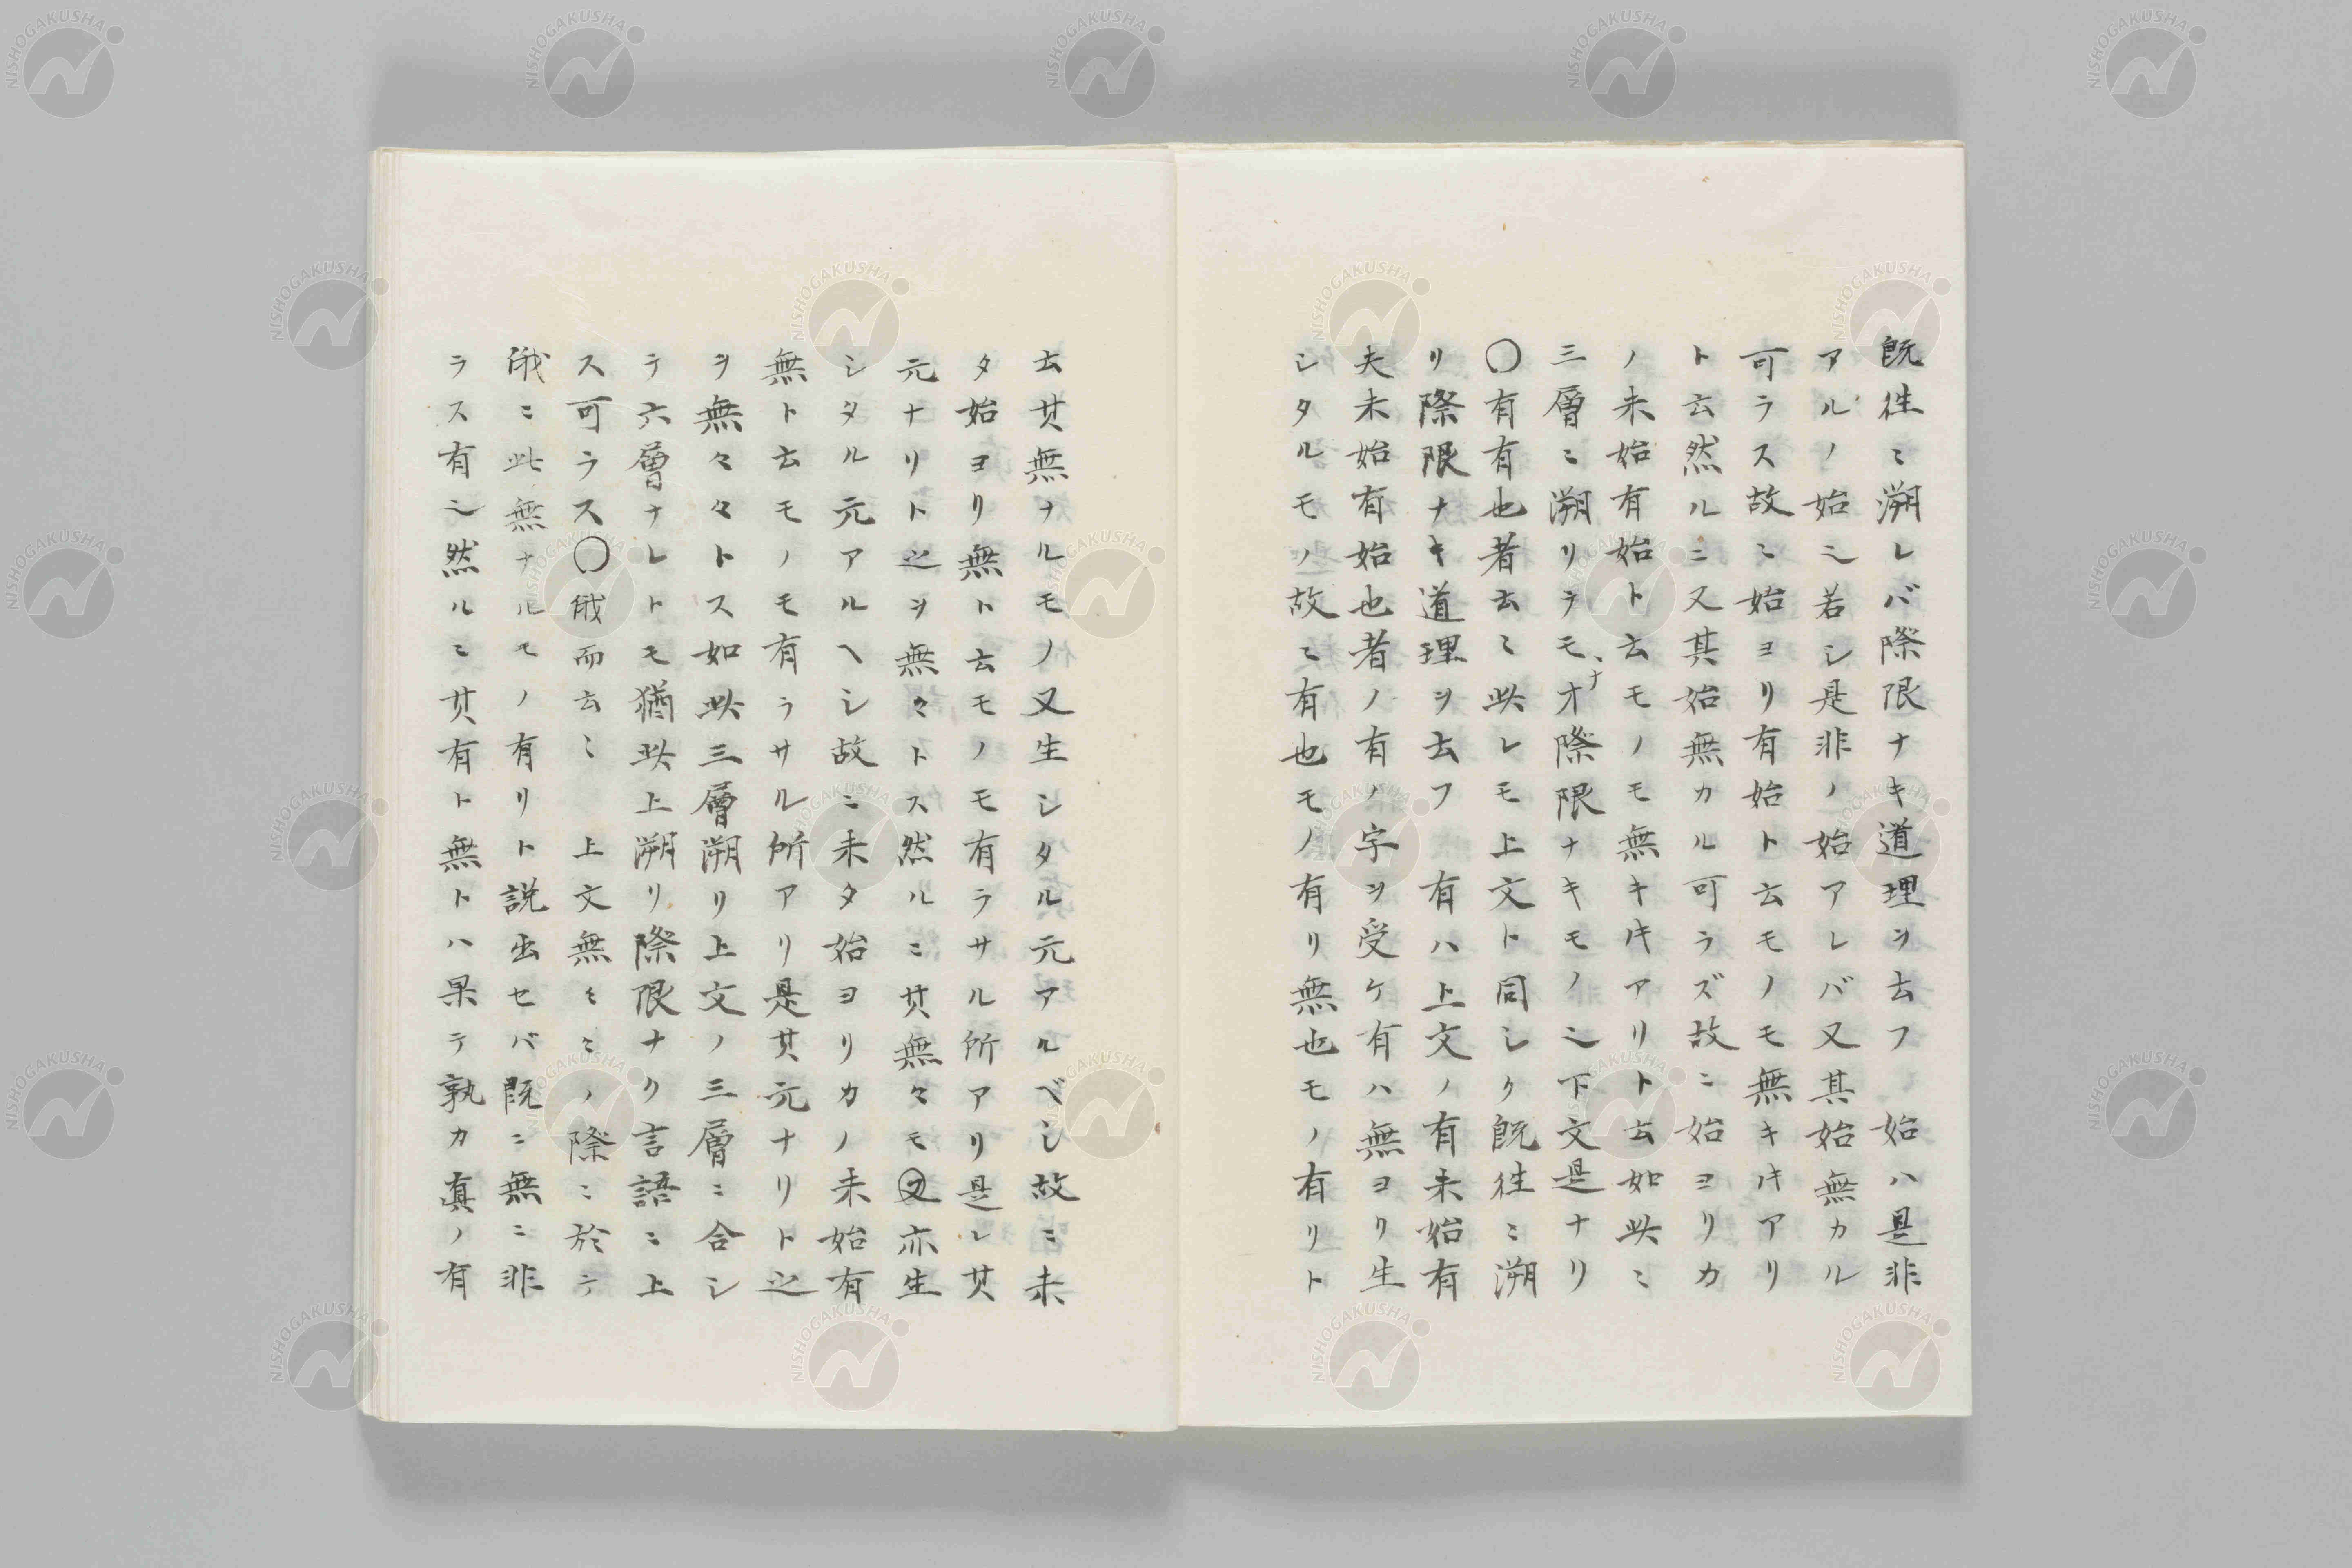 既往ニ溯レバ際限ナキ道理ヲ云フ 始ハ是非
アルノ始ニ若シ是非ノ始アレバ又其始無カル
可ラス故ニ始ヨリ有始ト云モノモ無キ𪜈アリ
ト云然ルニ又其始無カル可ラズ故ニ始ヨリカ
ノ未始有始ト云モノモ無キ𪜈アリト云如此ニ
三層ニ溯リラモナオ際限ナキモノ之下文是ナリ
〇有有也者云ニ此レモ上文ト同シク既往ニ溯
リ際限ナキ道理ヲ云フ 有ハ上文ノ有未始有
夫未始有始也者ノ有ノ字ヲ受ケ有ハ無ヨリ生
シタルモノ故ニ有也モノ有リ無也モノ有リト
云其無ナルモノ又生シタル元アルベシ故ニ未
タ始ヨリ無ト云モノモ有ラサル所アリ是レ其
元ナリト之ヲ無々トス然ルニ其無々モ又亦生
シタル元アルヘシ故ニ未タ始ヨリカノ未始有
無ト云モノモ有ラサル所アリ是其元ナリト之
ヲ無々々トス如此三層溯リ上文ノ三層ニ合シ
テ六層ナレトモ猶此上溯リ際限ナク言語ニ上
ス可ラス〇俄而云ニ 上文無々々ノ際ニ於テ
俄ニ此無ナルモノ有リト説出セバ既ニ無ニ非
ラス有之然ルニ其有ト無トハ果テ孰カ真ノ有
NISHOGAKUSHA